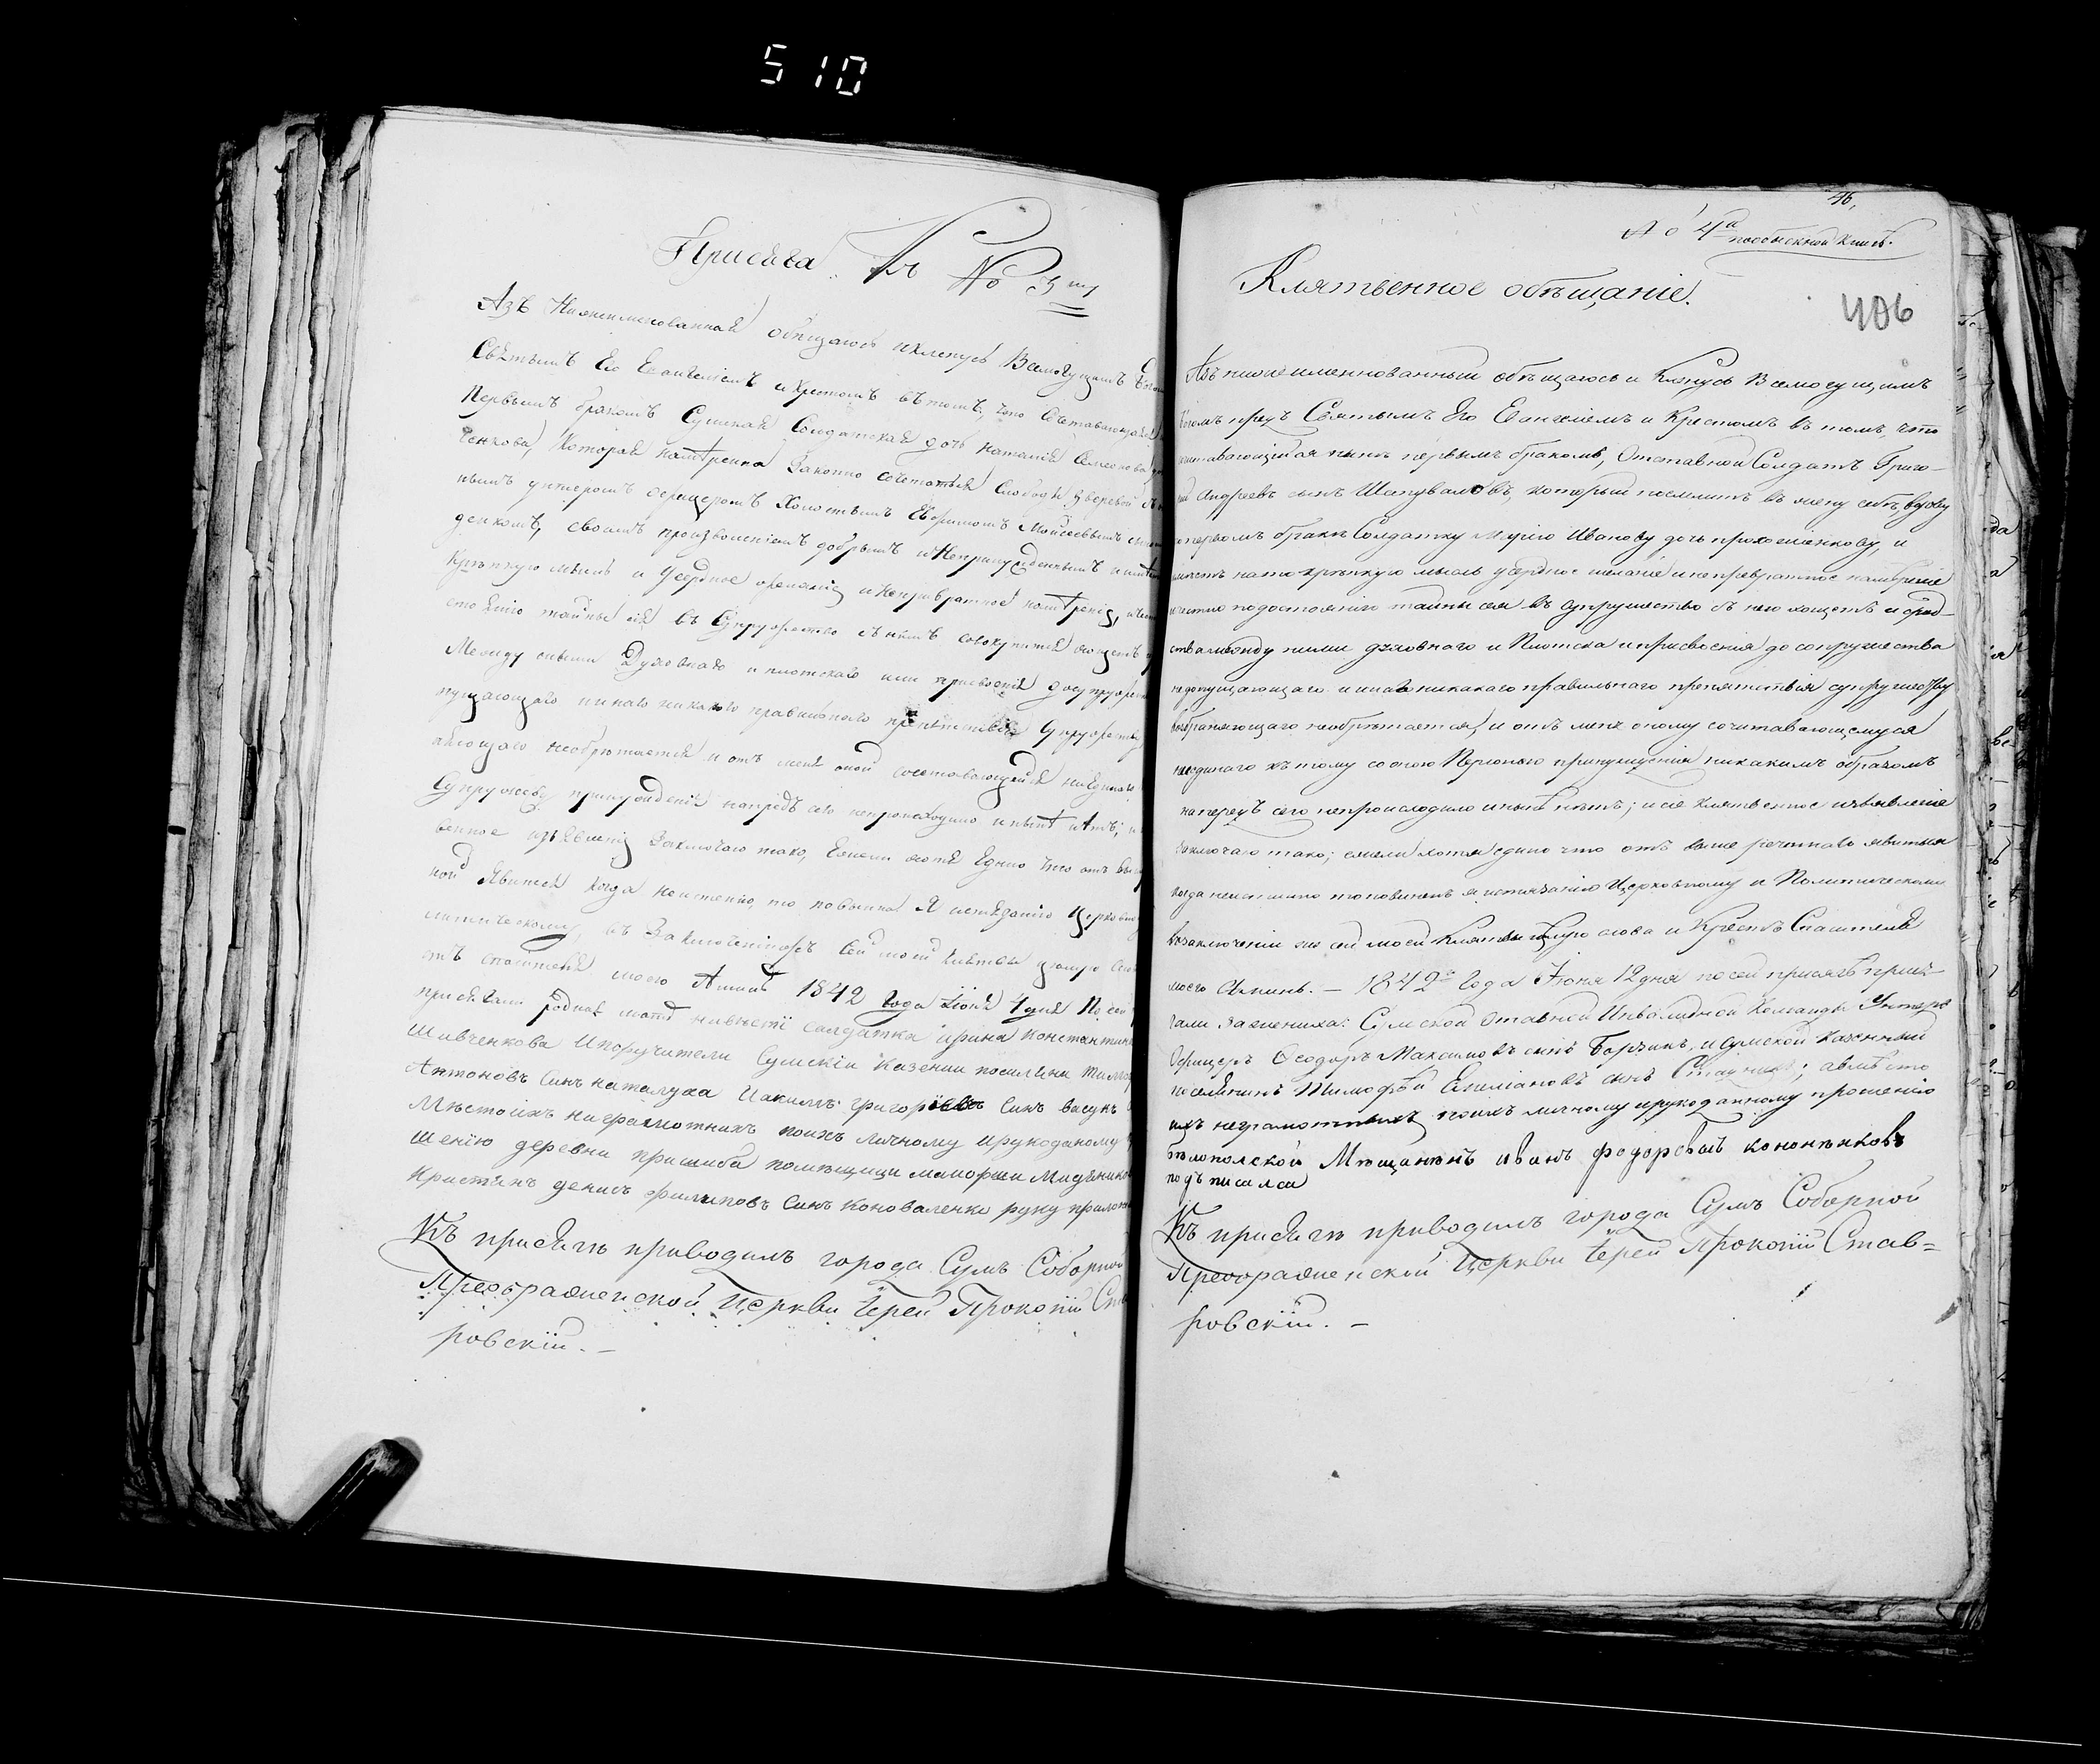 510
Присяга. Къ № 3му
Азъ Нижеимянованная обещаюсь и кленусь Всемогущимъ Богом
Святымъ Его Евангелiемъ и Крестомъ въ томъ, что Сочетавающаяся
Первымъ бракомъ Сумская Солдатская дочь Наталiя Симеонова
ченкова, Которая намѣренна Законно сочетатся Слободы
нымъ унтеромъ офицеромъ Холостымъ Ефримомъ Мойсеевымъ
денкомъ, своимъ произволенiемъ добрымъ и Непринужденнымъ
Крѣпкую мысль и Усердное желанiе и Непревратное намѣренiе,
стоянiю тайны сея въ Супружество съ нимъ совокупится хощетъ
Между ними Духовнаго и плотскаго или присвоенiя до супруже
пущающаго инаго никакого правилнаго препятствiя Супружеству
няющаго необрѣтается и отъ мене оной сочетавающейся ниединаго
Супружеству принужденiя напредъ сего непроисходило и нынѣ нѣтъ;
венное изъявленiе Заключаю тако, Ежели хотя Едино что отъ
ной Явится когда неистенно, то повинна Я истязанiю Церковно
литическому, въ Заключенiижъ Сей моей клятвы цѣлую
стъ спасителя моего Аминь 1842 Года Iюня 4 дня По сей
присягали родная мать нивѣсти салдатка ирина Константин
Шивченкова И поручители Сумскiи казении посиляни
Антоновъ Синъ наталуха Иакимъ григорiевъ Синъ васунъ
Мѣстоихъ ниграмотнихъ поихъ личному ирукоданому
шенiю деревни пришиба помѣщици маиорши
Кристянъ денисъ филиповъ Синъ Коноваленко руку приложи
Къ присягѣ приводилъ города Сумъ Соборной
Преображенской Церкви Iерей Прокопiй Ста
ровскiй. –
46,
Къ 4й
Клятвенное обѣщанiе.
406
Азъ нижеименнованный обѣщаюсь и Клянусь Всемогущимъ
Богомъ предъ Святымъ Его Евангелiемъ и Крестомъ въ томъ, что
сочетавающiйся нынѣ первымъ бракомъ, Отставной Солдатъ Григо-
рiй Андреевъ сынъ Шаповаловъ, который поемлитъ въ жену себѣ, вдову
по первомъ бракѣ Солдатку Марiю Иванову дочь Прохоменкову, и
имѣетъ на то крѣпкую мысль усердное желанiе и непревратное намѣренiе
и честно по достоянiю тайны сея въ супружество съ нею хощетъ и срод-
ства между ними духовнаго и Плотска и присвоенiя до сопружества
недопущающаго и инаго никакаго правильнаго препятствiя супружеству
возбраняющаго необрѣтается, и отъ мене оному сочитавающемуся
ниединаго къ тому со оною Персоною принужденiя никакимъ образомъ
напередъ сего непроисходило и нынѣ нѣтъ; и сiе Клятвенное изъявленiе
Заключаю тако; ежели хотя едино что отъ выше реченнаго явиться
когда неистинно то повиненъ я истязанiю Церковному и Политическому
въ заключенiи же сей моей Клятвы Цѣлую слова и Крестъ Спасителя
моего Аминь. – 1842го Года Iюня 12 дня по сей присягѣ прися-
гали за жениха: Сумской Инвалидной Команды Унтеръ
Офицеръ Феодоръ Максимовъ сынъ Борзикъ, и сумской казенный
поселянинъ Тимофѣй Емелiановъ сынъ; авмѣсто
ихъ неграмотныхъ поихъ личному ирукоданному прошенiю
бѣлополской Мѣщанинъ иванъ федоровъ кононѣнковъ
подъписался
Къ присягѣ приводилъ города Сумъ Соборной
Преображенской Церкви Iерей Прокопiй Став=
ровскiй. –